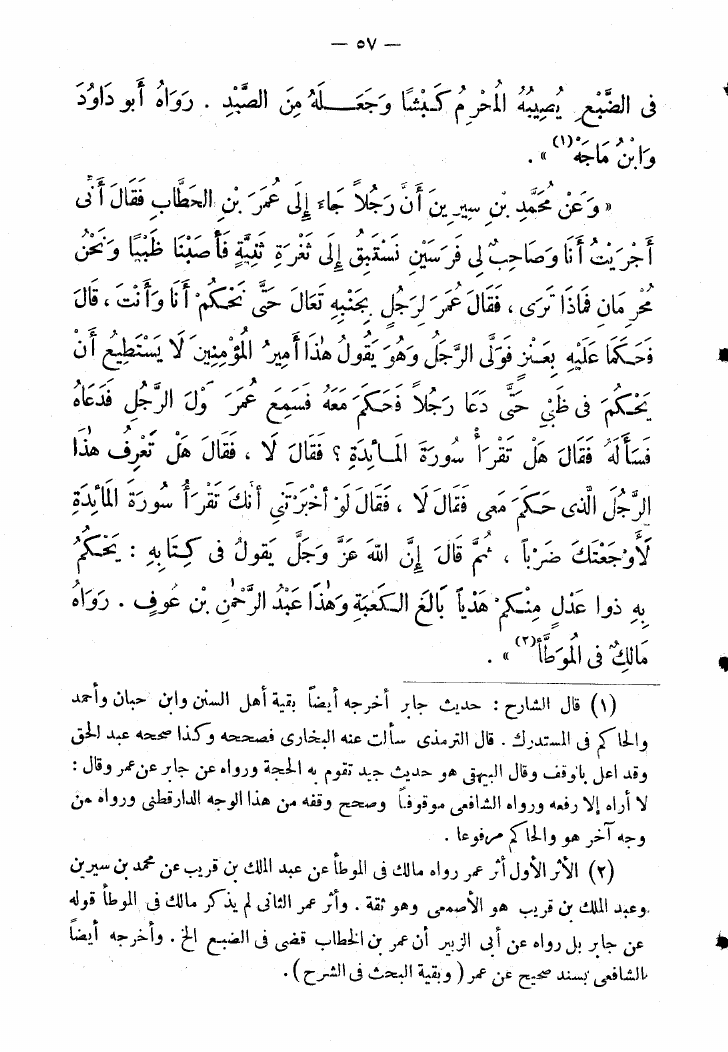 — ٥٧ —
فى الضَّبُعِ يُصِيبُهُ الْمُحْرِمُ كَبْشًا وَجَعَلَهُ مِنَ الصَّيْدِ . رَوَاهُ أَبو دَاوُدَ
وَابْنُ مَاجَه (١) » .
« وَعَنْ مُحَمَّدِ بْنِ سِيرِينَ أَنَّ رَجُلاً جَاءَ إِلَى عُمَرَ بْنِ الخَطَّابِ فَقَالَ أَنِّى
أَجْرَيْتُ أَنَا وَصَاحِبٌ لِى فَرَسَيْنِ نَسْتَبِقُ إِلَى ثَغْرَةِ ثَنِيَّةٍ فَأَصَبْنَا ظَبْيًا وَنَحْنُ
مُحْرِمَانِ فَمَاذَا تَرَى ، فَقَالَ عُمَرَ لِرَجُلٍ بِجَنْبِهِ تَعَالَ حَتَّى نَحْكُمْ أَنَا وَأَنْتَ ، قَالَ
فَحَكَمَا عَلَيْهِ بِعَنْزٍ فَوَلَّى الرَّجُلُ وَهُوَ يَقُولُ هٰذَا أَمِيرُ الْمُؤْمِنِينَ لَا يَسْتَطِيعُ أَنْ
يَحْكُمَ فى ظَبْىٍ حَتَّى دَعَا رَجُلاً فَحَكَمَ مَعَهُ فَسَمِعَ عُمَرَ وْلَ الرَّجُلِ فَدَعَاهُ
فَسَأَلَهُ فَقَالَ هَلْ تَقْرَأُ سُورَةَ الْمَـائِدَةِ ؟ فَقَالَ لَا ، فَقَالَ هَلْ تَعْرِفُ هٰذَا
الرَّجُلَ الَّذى حَكَمَ مَعِى فَقَالَ لَا ، فَقَالَ لَوْ أَخْبَرْتَنِى أَنكَ تَقْرَأُ سُورَةَ الْمَائِدَةِ
لَأَوْجَعْتُكَ ضَرْباً ، ثُمَّ قَالَ إِنَّ اللّٰهَ عَزَّ وَجَلَّ يَقُولُ فى كِتَابِهِ : يَحْكُمُ
بِهِ ذوا عَدْلٍ مِنْكُمْ هَدْياً بَالِغَ الْكَعْبَةِ وَهٰذَا عَبْدُ الرَّحْمٰنِ بْن عَوفٍ . رَوَاهُ
مَالِكٌ فى الْمُوَطَّأ (٢) » .
(١) قال الشارح : حديث جابر أخرجه أيضاً بقية أهل السنن وابن حبان وأحمد
والحاكم فى المستدرك . قال الترمذى سألت عنه البخارى فصححه وكذا صححه عبد الحق
وقد اعل بالوقف وقال البيهقى هو حديث جيد تقوم به الحجة ورواه عن جابر عن عمر وقال :
لا أراه إلا رفعه ورواه الشافعى موقوفاً وصحح وقفه من هذا الوجه الدارقطنى ورواه من
وجه آخر هو والحاكم مرفوعا .
(٢) الأثر الأول أثر عمر رواه مالك فى الموطأ عن عبد الملك بن قريب عن محمد بن سيرين
وعبد الملك بن قريب هو الأصمعى وهو ثقة . وأثر عمر الثانى لم يذكر مالك فى الموطأ قوله
عن جابر بل رواه عن أبى الزبير أن عمر بن الخطاب قضى فى الضبع الخ . وأخرجه أيضاً
الشافعى بسند صحيح عن عمر ( وبقية البحث فى الشرح ) .